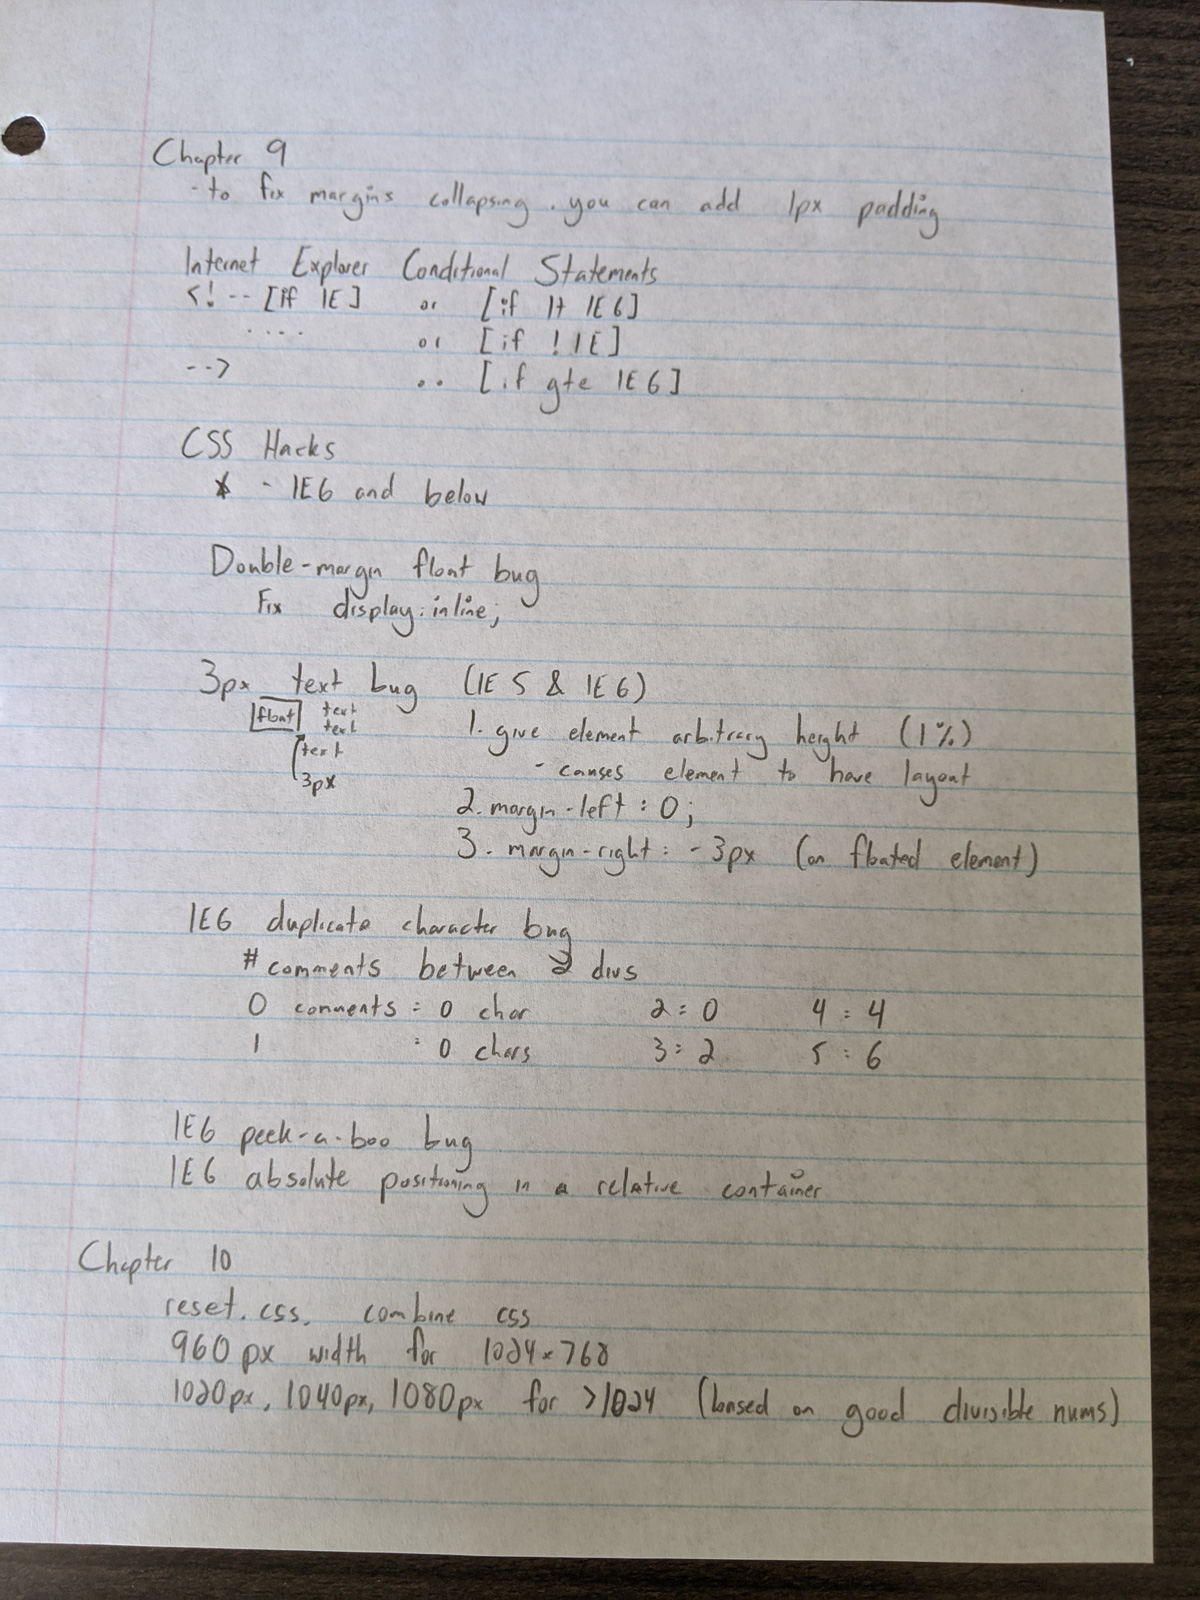 Chapter 9
- to fix margins collapsing. you can add 1px padding
Internet Explorer Conditional Statements
<!-- [if IE] or [if lt IE6]
.... or [if !IE]
--> .. [if gte IE6]
CSS Hacks
* - IE6 and below
Double-margin float bug
Fix display:inline;
3px text bug (IE 5 & IE 6)
float text
text
text
3px
1. give element arbitrary height (1%)
- causes element to have layout
2. margin-left: 0;
3. margin-right: -3px (on floated element)
IE6 duplicate character bug
# comments between 2 divs
0 comments : 0 char 2:0 4:4
1 : 0 chars 3:2 5:6
IE6 peek-a-boo bug
IE6 absolute positioning in a relative container
Chapter 10
reset.css. combine css
960 px width for 1024x768
1020px, 1040px, 1080px for >1024 (based on good divisible nums)